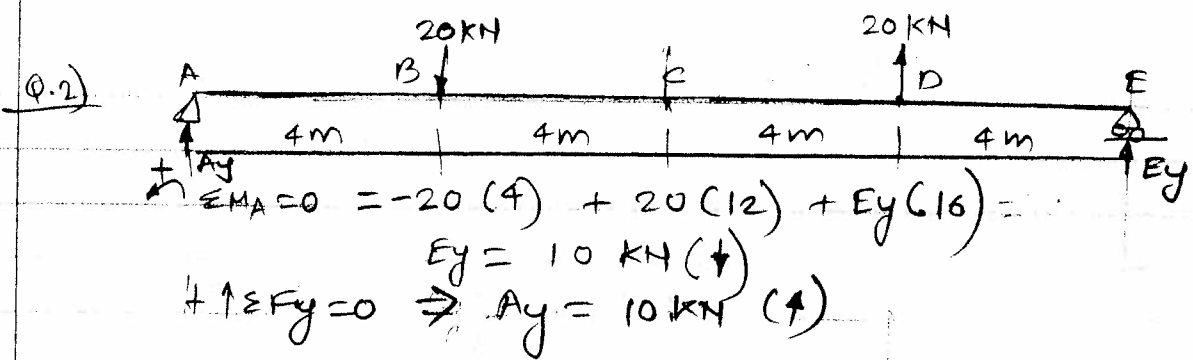 20 KN 20 KN
Q.2) A B C D E
4m 4m 4m 4m
Ay Ey
+ ΣMA=0 = -20 (4) + 20 (12) + Ey (16) =
Ey = 10 KN (↓)
+ ↑ΣFy=0 ⇒ Ay = 10 KN (↑)